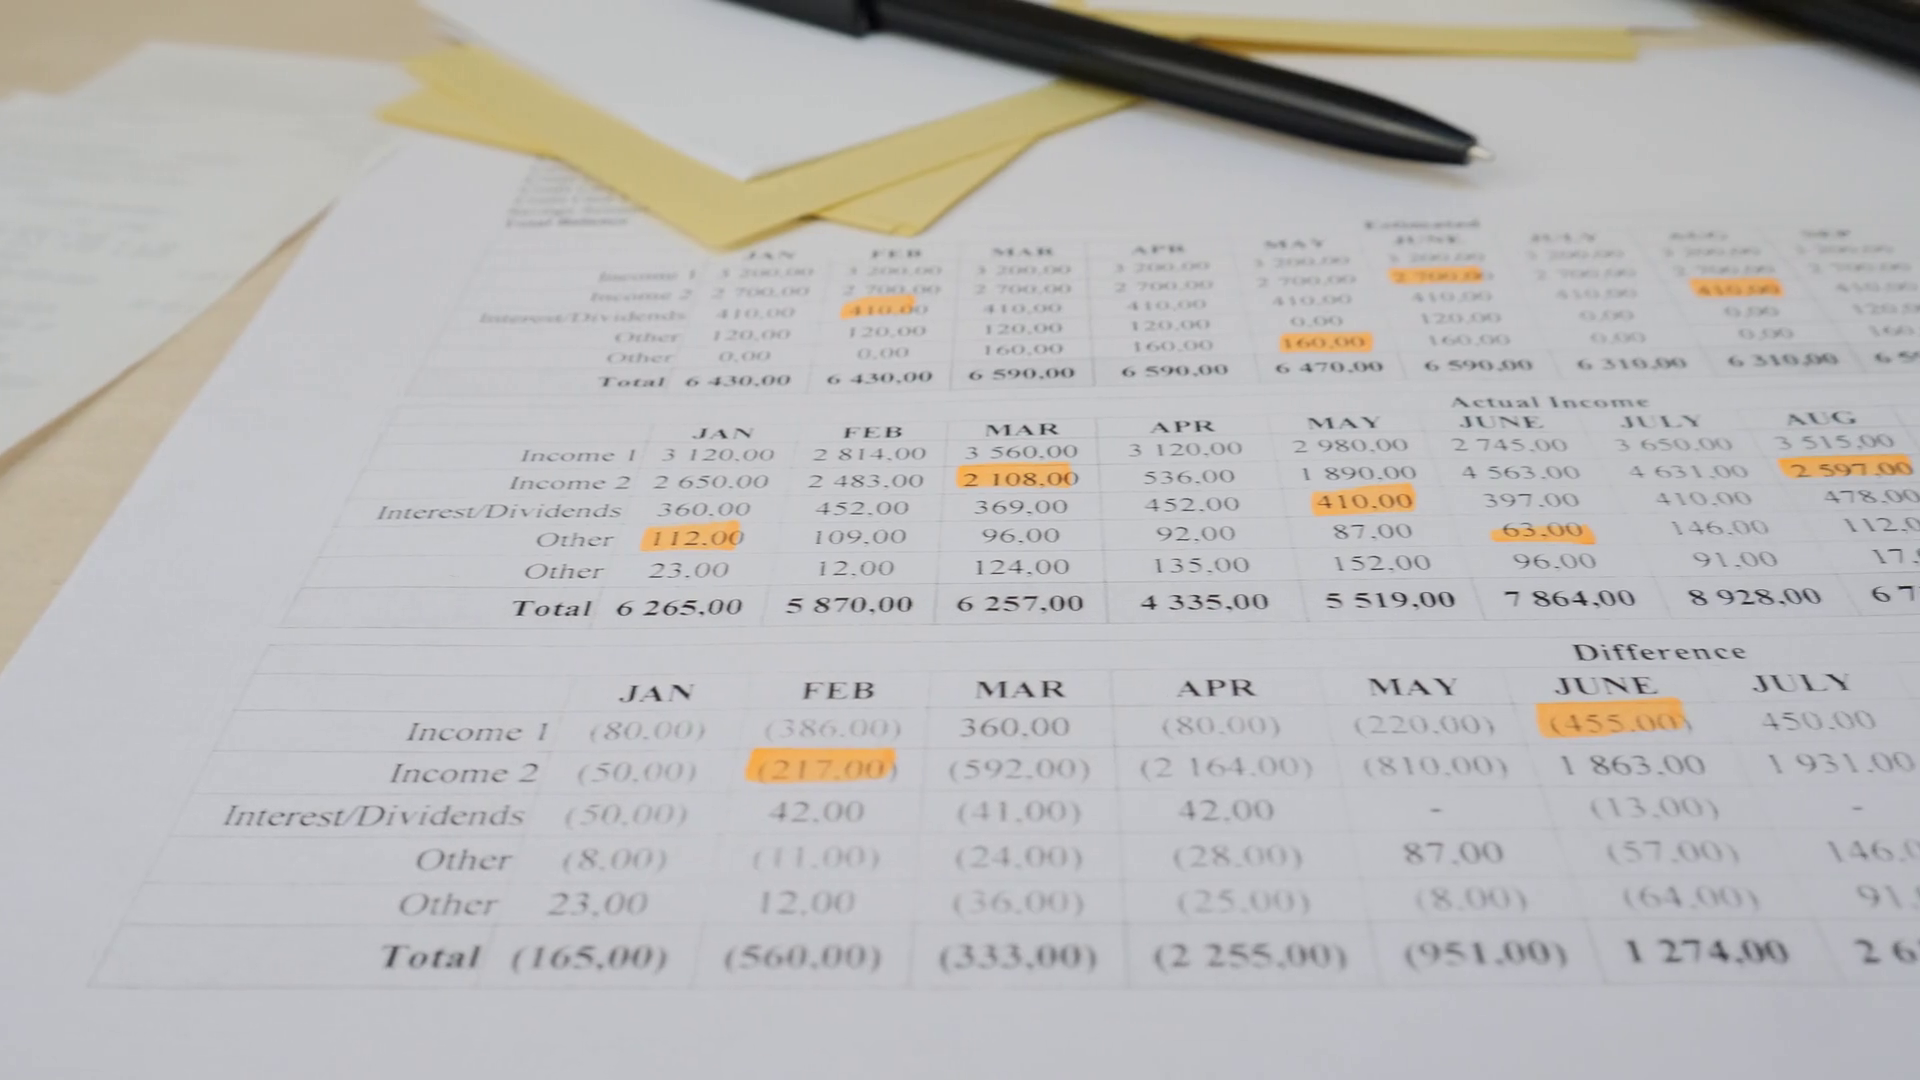 Total Balance
Estimated
JAN FEB MAR APR MAY JUNE JULY AUG SEP
Income 1 3 200,00 3 200,00 3 200,00 3 200,00 3 200,00 3 200,00 3 200,00 3 200,00
Income 2 2 700,00 2 700,00 2 700,00 2 700,00 2 700,00 2 700,00 2 700,00 2 700,00
Interest/Dividends 410,00 410,00 410,00 410,00 410,00 410,00 410,00 410,00
Other 120,00 120,00 120,00 120,00 0,00 120,00 0,00 0,00
Other 0,00 0,00 160,00 160,00 160,00 160,00 0,00 0,00
Total 6 430,00 6 430,00 6 590,00 6 590,00 6 470,00 6 590,00 6 310,00 6 310,00
Actual Income
JAN FEB MAR APR MAY JUNE JULY AUG
Income 1 3 120,00 2 814,00 3 560,00 3 120,00 2 980,00 2 745,00 3 650,00 3 515,00
Income 2 2 650,00 2 483,00 2 108,00 536,00 1 890,00 4 563,00 4 631,00 2 597,00
Interest/Dividends 360,00 452,00 369,00 452,00 410,00 397,00 410,00 478,00
Other 112,00 109,00 96,00 92,00 87,00 63,00 146,00 112,0
Other 23,00 12,00 124,00 135,00 152,00 96,00 91,00 17,
Total 6 265,00 5 870,00 6 257,00 4 335,00 5 519,00 7 864,00 8 928,00 6 7
Difference
JAN FEB MAR APR MAY JUNE JULY
Income 1 (80,00) (386,00) 360,00 (80,00) (220,00) (455,00) 450,00
Income 2 (50,00) (217,00) (592,00) (2 164,00) (810,00) 1 863,00 1 931,00
Interest/Dividends (50,00) 42,00 (41,00) 42,00 - (13,00) -
Other (8,00) (11,00) (24,00) (28,00) 87,00 (57,00) 146,0
Other 23,00 12,00 (36,00) (25,00) (8,00) (64,00) 91,
Total (165,00) (560,00) (333,00) (2 255,00) (951,00) 1 274,00 2 6